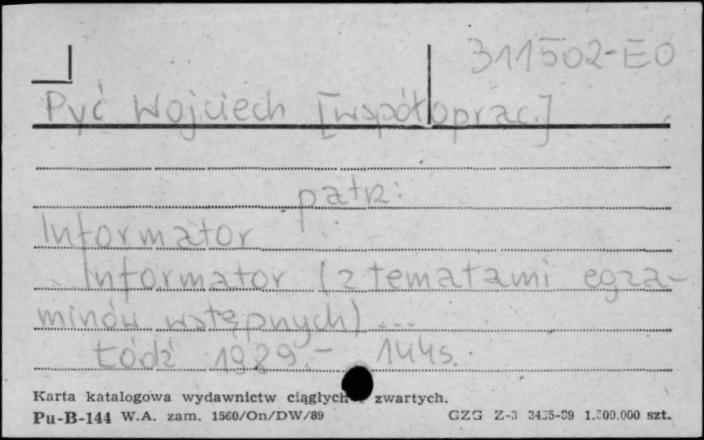 311502-EO
Pyć Wojciech [współoprac.]
patrz:
Informator
Informator (z tematami egza-
minów wstępnych) ...
Łódź 1989.- 144s.
Karta katalogowa wydawnictw ciągłych zwartych.
Pu-B-144 W.A. zam. 1560/On/DW/89 GZG Z-3 3435-89 1.500.000 szt.